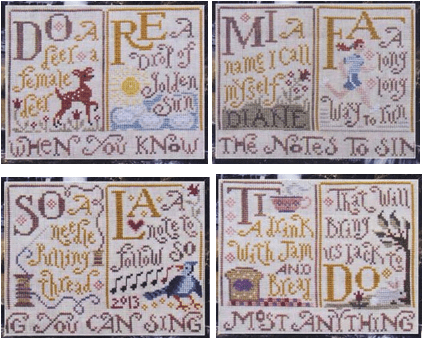 DO A
deer a
female
deer
RE A
Drop of
Golden
Sun
WHEN YOU KNOW
MI A
name I call
myself
DIANE
FA A
long
long
Way to Run
THE NOTES TO SIN
SO A
needle
pulling
thread
LA A
note to
follow So
2013
G YOU CAN SING
TI
A drink
With Jam
AND
Bread
That Will
Bring
us back to
DO
MOST ANYTHING